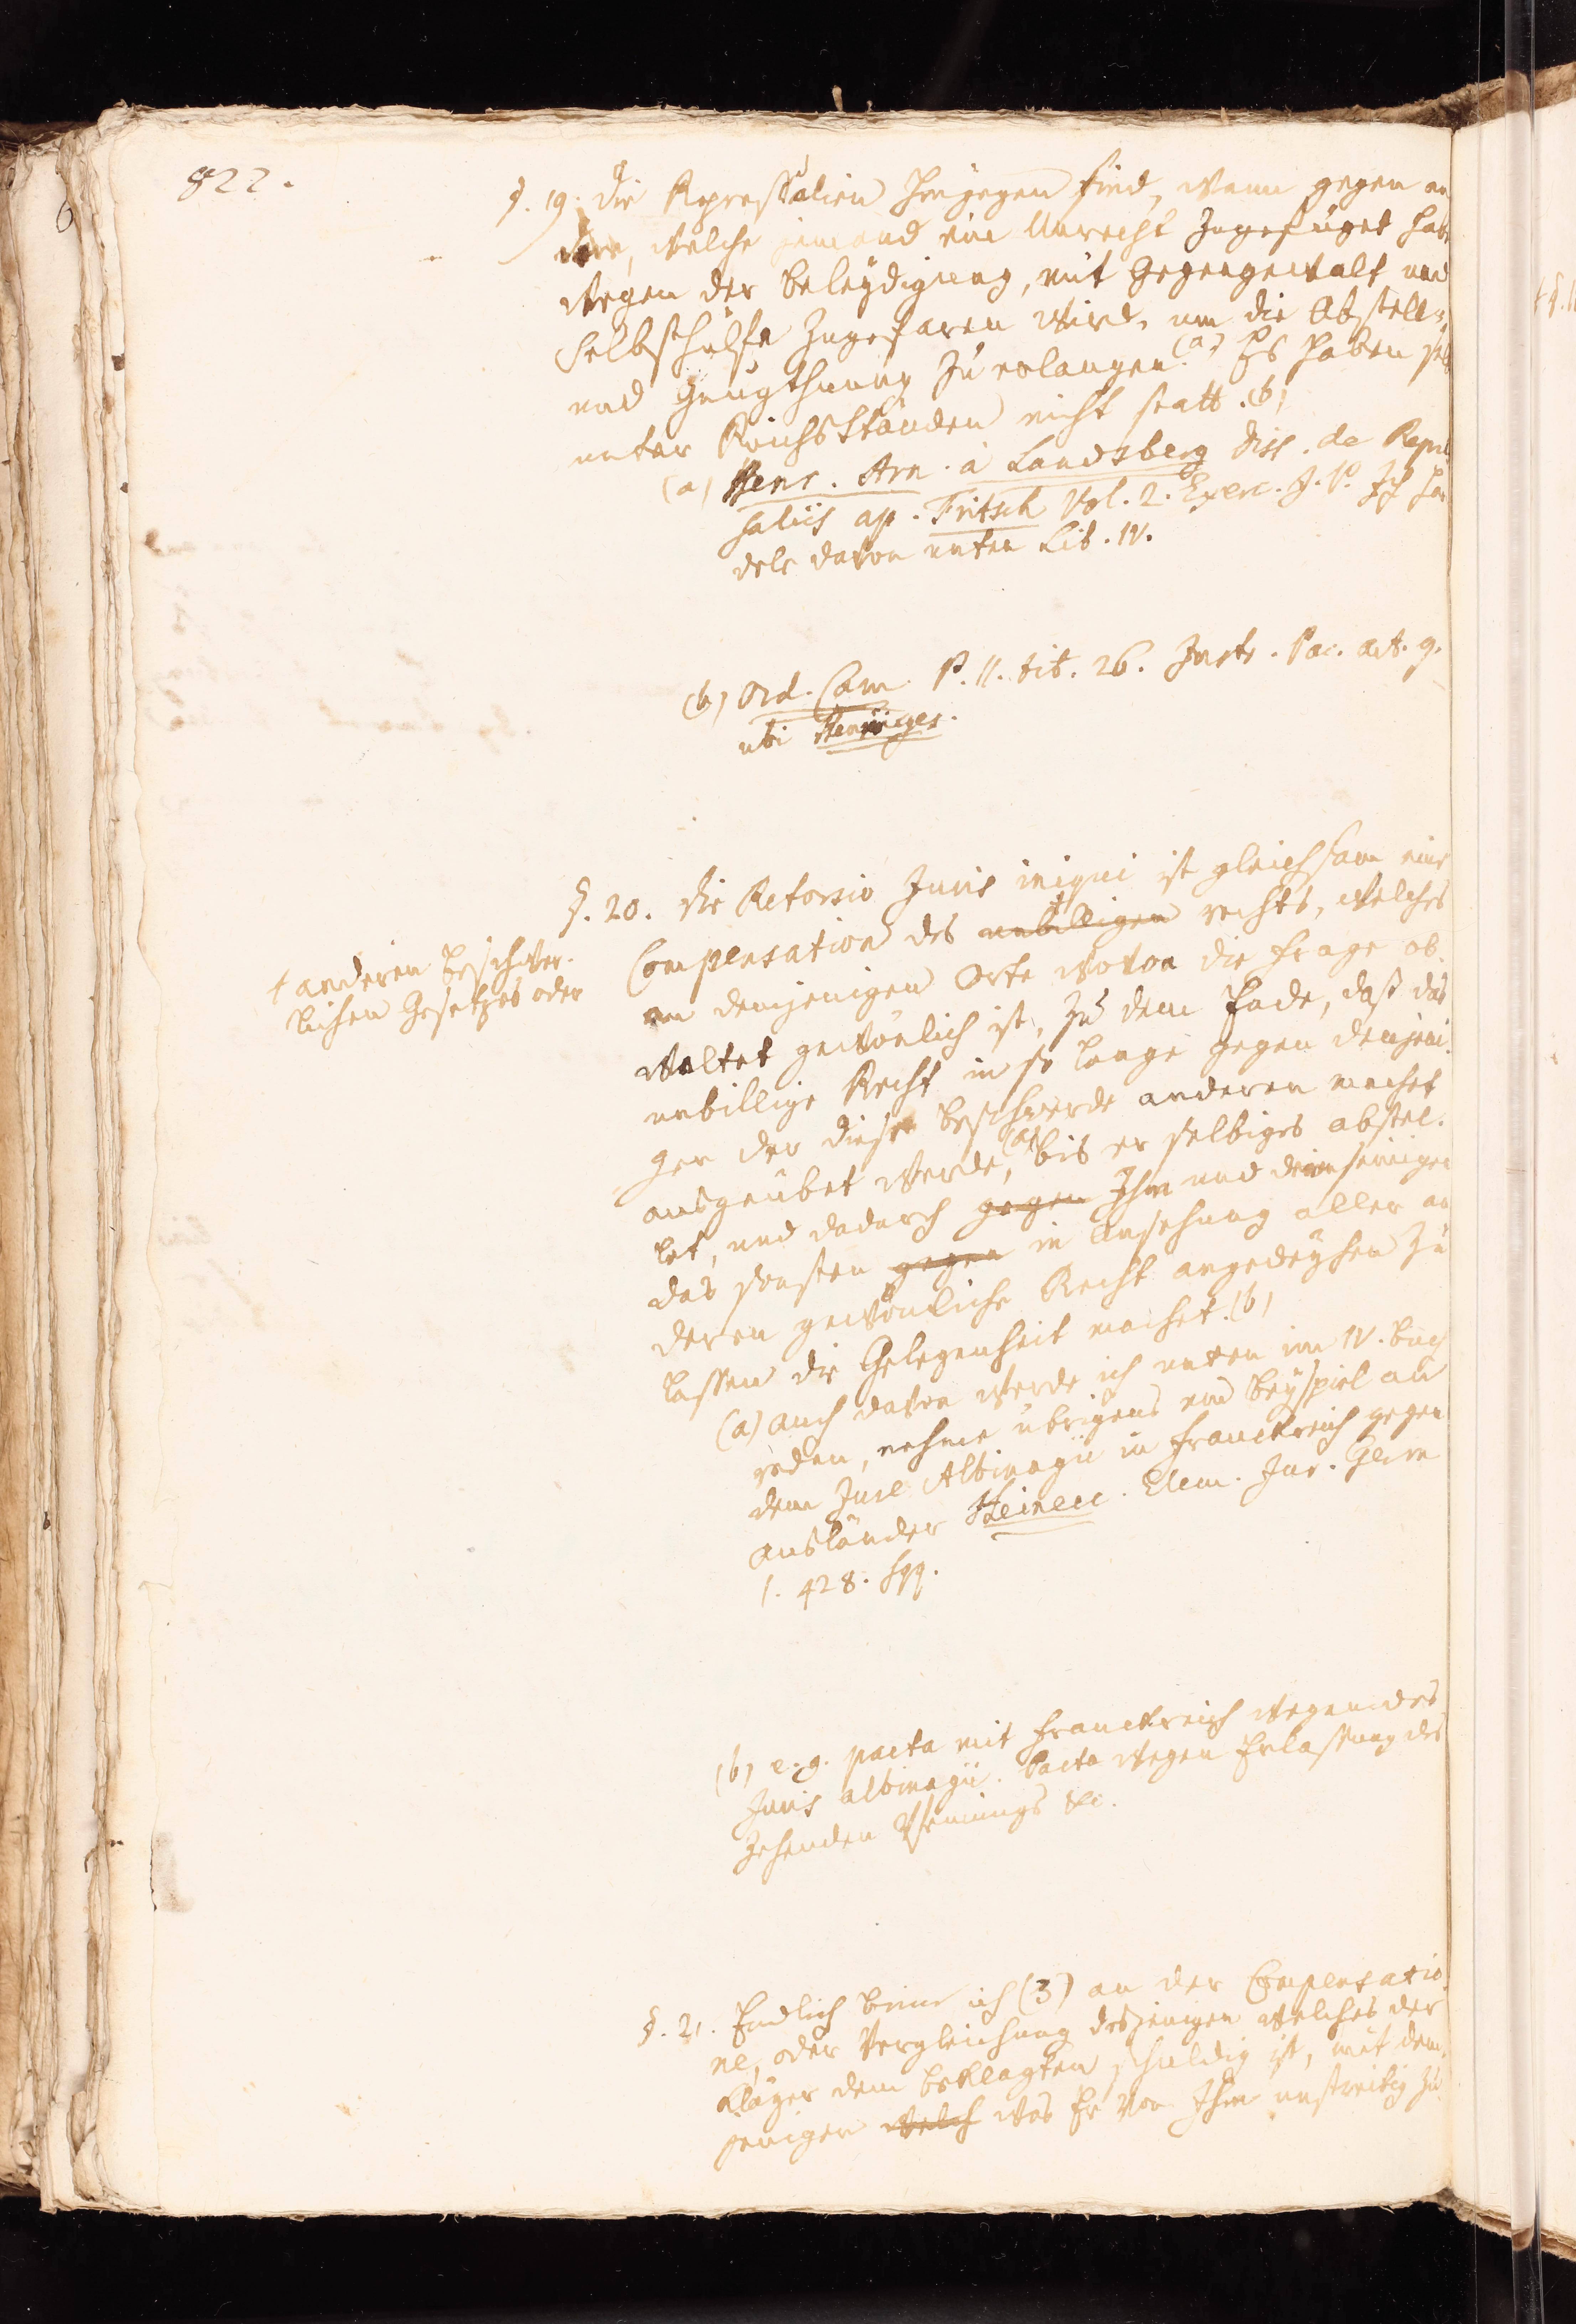 822.
§. 19. Die Repressalien hingegen sind, wann gegen an
dere, welche jemand ein Unrecht zugefüget habe
wegen der beleydigung, mit Gegengewalt und
selbsthülfe zugefaren wird, um die Abstell-
und Genugthuung zu erlangen.(a) Es haben sel
unter Reichsständen nicht statt.(b)
(a) Henr. Arn. à Landsberg Diss. de Repre
saliis ap. Fritsch Vol. 2. Exerc. J. P. Ich han
dele davon unten Lib. IV.
(b) Ord. Cam P. II. tit. 26. Instr. Pac. art. 9.
ubi Henniges.
§. 20. Die Retorsio Juris iniqui ist gleichsam eine
Compensation des unbilligen rechts, welches
an demjenigen Orte wovon die frage ob-
waltet gewönlich ist, zu dem Ende, daß das
unbillige Recht in so lange gegen denjeni-
gen der diese beschwerde anderen machet
ausgeübet werde,(a) bis er selbiges abstel-
let, und dadurch gegen Ihm und den seinigen
das sonsten gegen in Ansehung aller an
deren gewönliche Recht angedeyhen zu
lassen die Gelegenheit machet.(b)
† anderen beschwer-
lichen Gesetzes oder
(a) auch davon werde ich unten im IV. buch
reden, nehme übrigens ein beyspiel an
dem Jure Albinagii in franckreich gegen
ausländer Heinecc. Elem. Jur. Germ
1. 428. sqq.
(b) e.g. pacta mit franckreich wegen des
Juris albinagii. Pacta wegen Erlassung des
Zehenden Pfennings &c.
§. 21. Endlich komme ich (3) an der Compensatio
ne, oder Vergleichung desjenigen welches der
Kläger dem beklagten schuldig ist, mit dem-
jenigen welch was Er von Ihm unstreitig zu